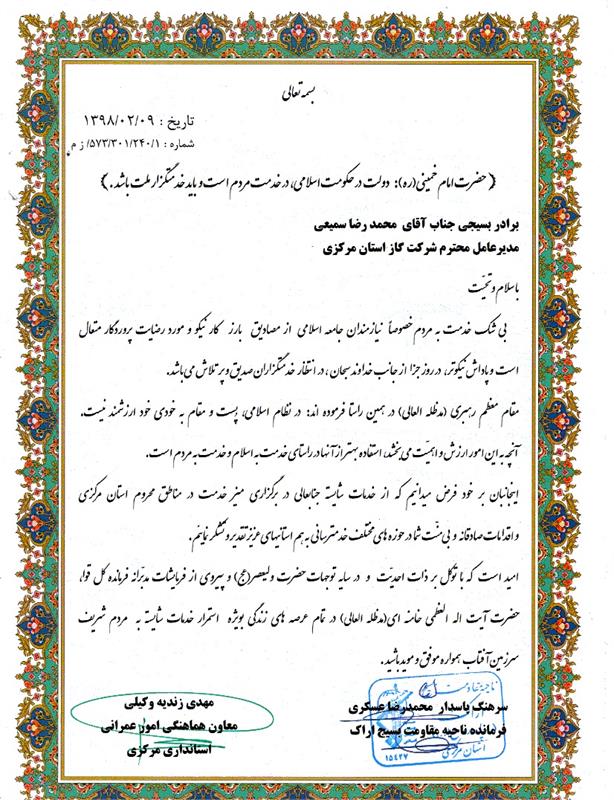 بسمه تعالی
تاریخ : ۱۳۹۸/۰۲/۰۹
شماره : ۵۷۳/۳۰۱/۲۴۰/۱/ ز م
( حضرت امام خمینی(ره): دولت در حکومت اسلامی، در خدمت مردم است و باید خدمتگزار ملت باشد. )
برادر بسیجی جناب آقای محمد رضا سمیعی
مدیرعامل محترم شرکت گاز استان مرکزی
با سلام و تحیّت
بی شک خدمت به مردم خصوصاً نیازمندان جامعه اسلامی از مصادیق بارز کار نیکو و مورد رضایت پروردکار متعال
است و پاداش نیکوتر، در روز جزا از جانب خداوند سبحان، در انتظار خدمتگزاران صدیق و پر تلاش می باشد.
مقام معظم رهبری (مدظله العالی) در همین راستا فرموده اند: در نظام اسلامی، پست و مقام به خودی خود ارزشمند نیست.
آنچه به این امور ارزش و اهمیّت می بخشد، استفاده بهتر از آنها در راستای خدمت به اسلام و خدمت به مردم است.
اینجانبان بر خود فرض میدانیم که از خدمات شایسته جنابعالی در برگزاری میز خدمت در مناطق محروم استان مرکزی
و اقدامات صادقانه و بی منّت شما در حوزه های مختلف خدمترسانی به هم استانیهای عزیز تقدیر و تشکر نمایئم.
امید است که با توکل بر ذات احدیّت و در سایه توجهات حضرت ولیعصر(عج) و پیروی از فرمایشات مدبّرانه فرمانده کل قوا،
حضرت آیت اله العظمی خامنه ای(مدظله العالی) در تمام عرصه های زندگی بویژه استمرار خدمات شایسته به مردم شریف
سرزمین آفتاب همواره موفق و موید باشید.
سرهنگ پاسدار محمدرضا عسکری
فرمانده ناحیه مقاومت بسیج اراک
استان مرکزی
۱۵۴۲۷
مهدی زندیه وکیلی
معاون هماهنگی امور عمرانی
استانداری مرکزی